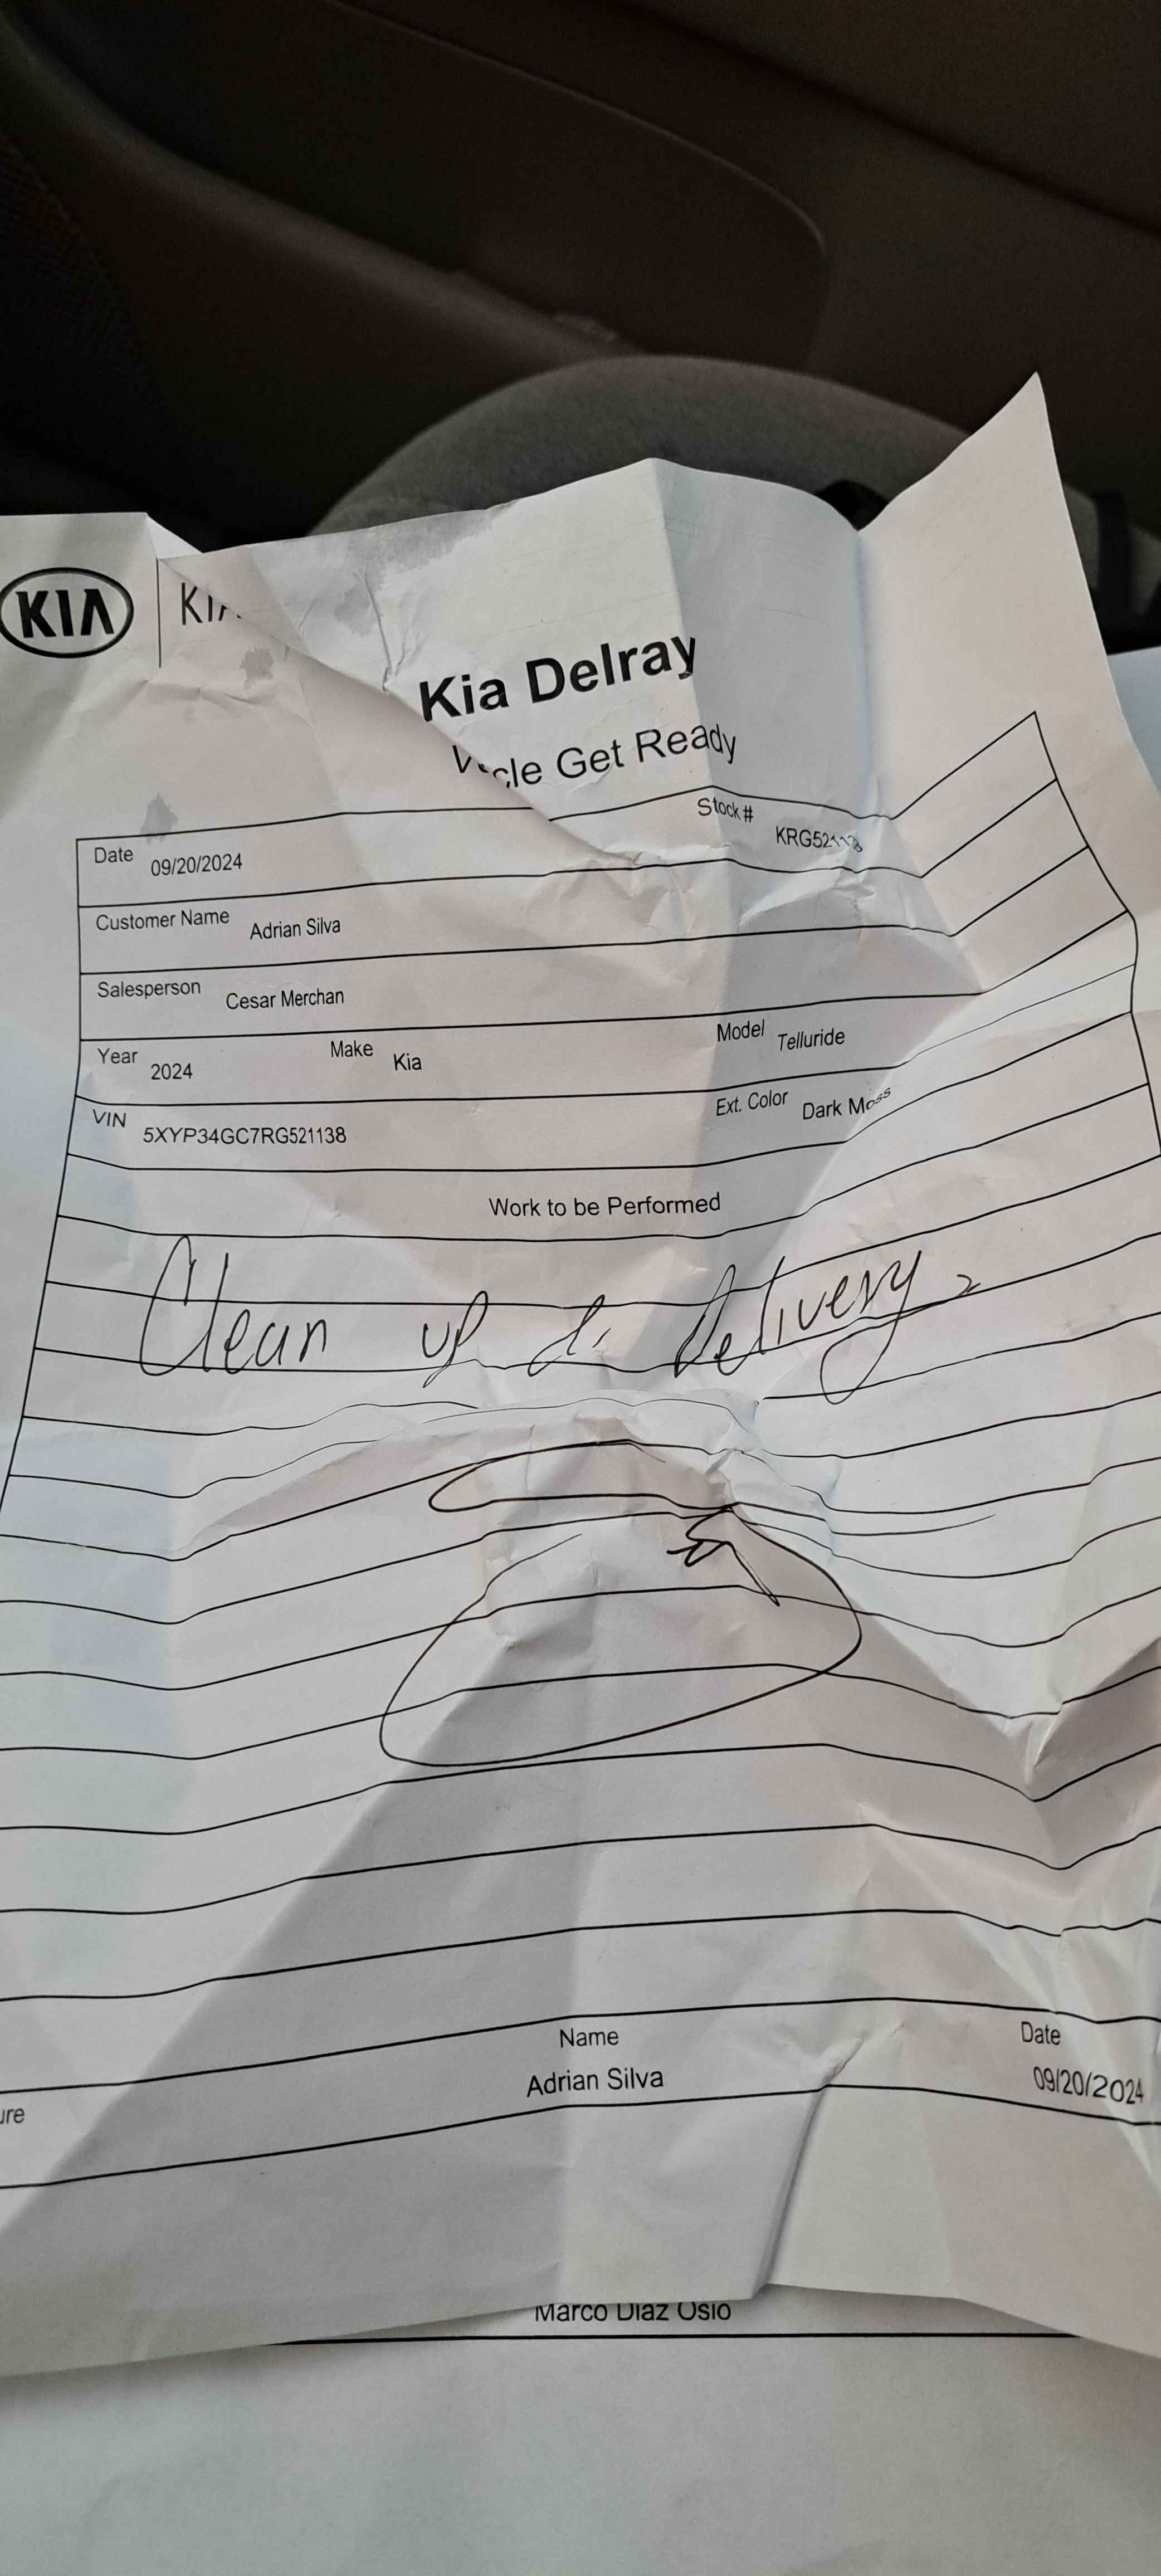 KIA
Kia Delray
Get Ready
Date 09/20/2024 Stock #
Customer Name Adrian Silva
Salesperson Cesar Merchan
Year 2024 Make Kia Model Telluride
VIN 5XYP34GC7RG521138 Ext. Color Dark Moss
Work to be Performed
Clean up & Delivery
Name Date
Adrian Silva 09/20/2024
Marco Diaz Osio